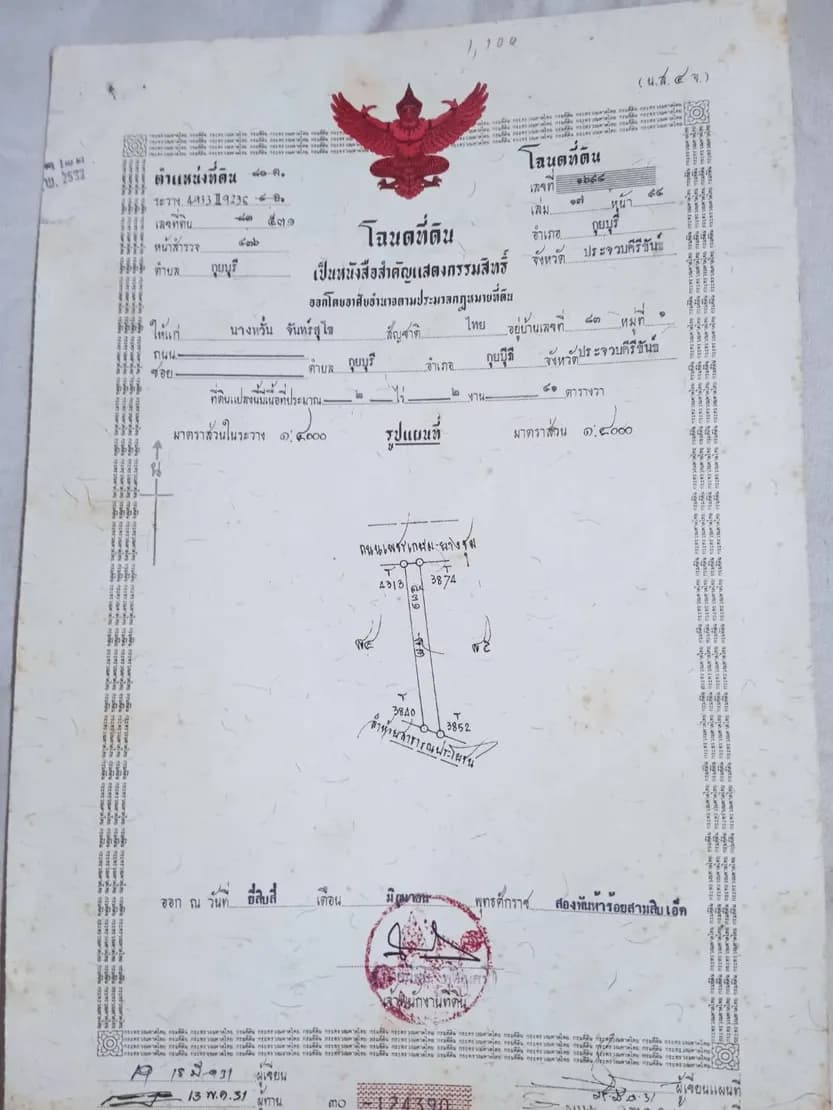 1,100
(น.ส. ๔ จ.)
ตำแหน่งที่ดิน
ระวาง 4933 II 9236
เลขที่ดิน ๕๓๑
หน้าสำรวจ ๔๓๖
ตำบล กุยบุรี
โฉนดที่ดิน
เลขที่ ๑๖๙๔
เล่ม ๑๗ หน้า ๙๔
อำเภอ กุยบุรี
จังหวัด ประจวบคีรีขันธ์
โฉนดที่ดิน
เป็นหนังสือสำคัญแสดงกรรมสิทธิ์
ออกโดยอาศัยอำนาจตามประมวลกฎหมายที่ดิน
ให้แก่ นางหวั่น จันทร์สุโข สัญชาติ ไทย อยู่บ้านเลขที่ ๘๓ หมู่ที่ ๑
ถนน
ซอย ตำบล กุยบุรี อำเภอ กุยบุรี จังหวัด ประจวบคีรีขันธ์
ที่ดินแปลงนี้มีเนื้อที่ประมาณ ๒ ไร่ ๒ งาน ๔๑ ตารางวา
มาตราส่วนในระวาง ๑:๔๐๐๐ รูปแผนที่ มาตราส่วน ๑:๔๐๐๐
น
ถนนเพชรเกษม-ยางชุม
4313 3874
๕๓๑
๘๓
3840 3852
ลำห้วยสาธารณประโยชน์
ออก ณ วันที่ ยี่สิบสี่ เดือน มิถุนายน พุทธศักราช สองพันห้าร้อยสามสิบเอ็ด
เจ้าพนักงานที่ดิน
18 มี.ค 31 ผู้เขียน
13 พ.ค. 31 ผู้ทาน
ผู้เขียนแผนที่